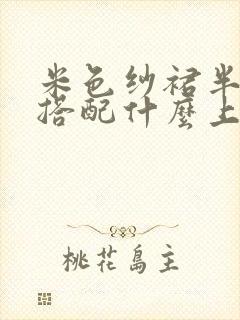 米色纱裙半
搭配什麽上
桃花岛主